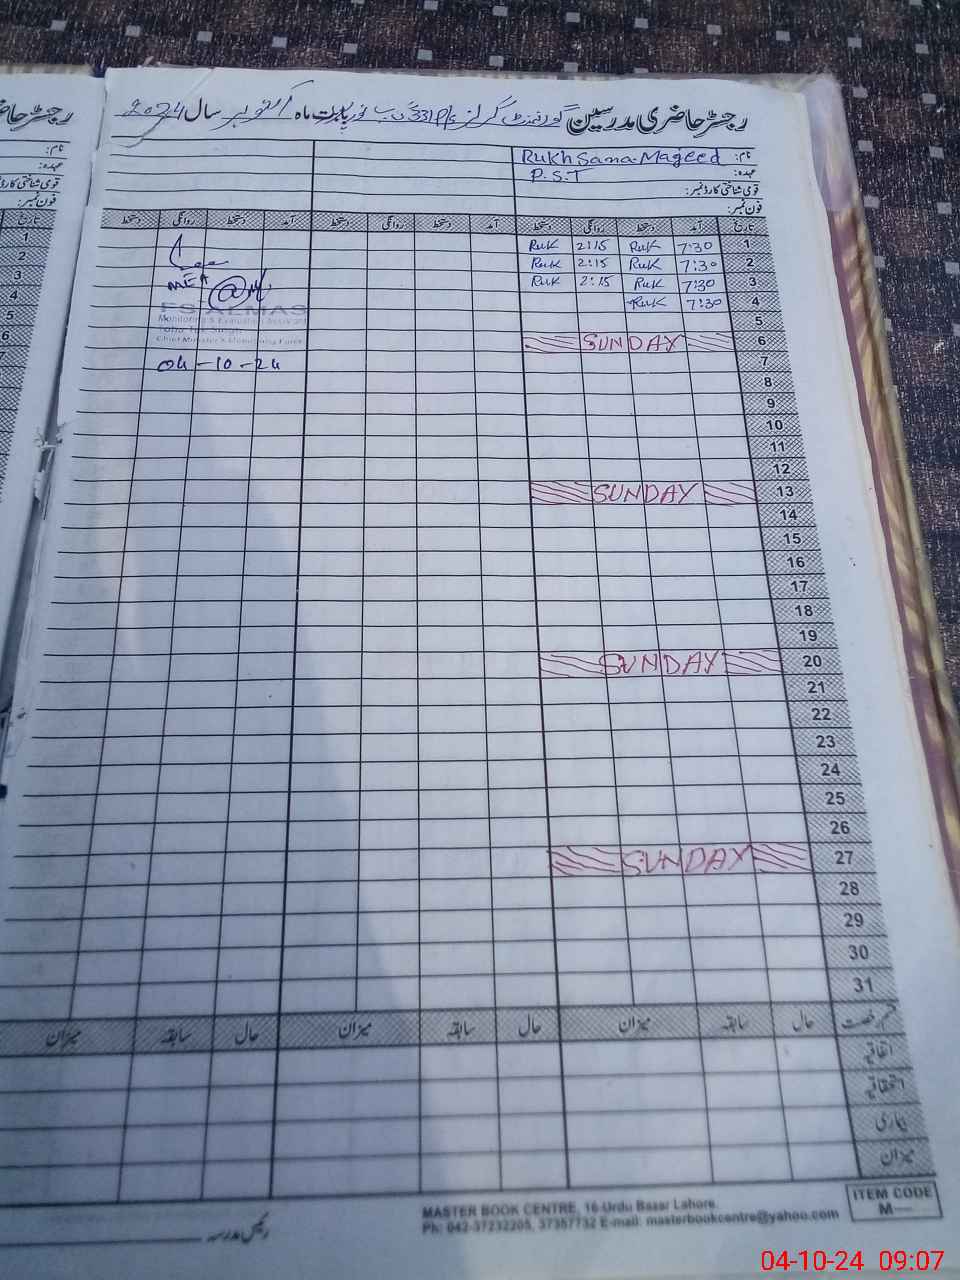 رجسٹر حاضری مدرسین گورنمنٹ گرلز 331 ماہ اکتوبر سال 2024
نام: Rukhsana Mageed
عہدہ: P.S.T
قومی شناختی کارڈ نمبر:
فون نمبر:
تاریخ آمد دستخط روانگی دستخط آمد دستخط روانگی دستخط آمد دستخط روانگی دستخط
1 7:30 Ruk 2:15 Ruk
2 7:30 Ruk 2:15 Ruk
3 7:30 Ruk 2:15 Ruk
4 7:30 Ruk
5
6 SUNDAY
7
8
9
10
11
12
13 SUNDAY
14
15
16
17
18
19
20 SUNDAY
21
22
23
24
25
26
27 SUNDAY
28
29
30
31
MEA
ES ALMAS
Monitoring & Evaluation Assistant
Toba Tek Singh
Chief Minister's Monitoring Force
04-10-24
قسم رخصت حال سابقہ میزان حال سابقہ میزان حال سابقہ میزان
اتفاقیہ
استحقاقیہ
بیماری
میزان
رئیس مدرسہ
MASTER BOOK CENTRE, 16-Urdu Bazar Lahore.
Ph: 042-37232205, 37357732 E-mail: masterbookcentre@yahoo.com
ITEM CODE
M—
رجسٹر حا
نام:
عہدہ:
قومی شناختی کارڈ
فون نمبر:
تاریخ
1
2
3
4
5
6
7
04-10-24 09:07